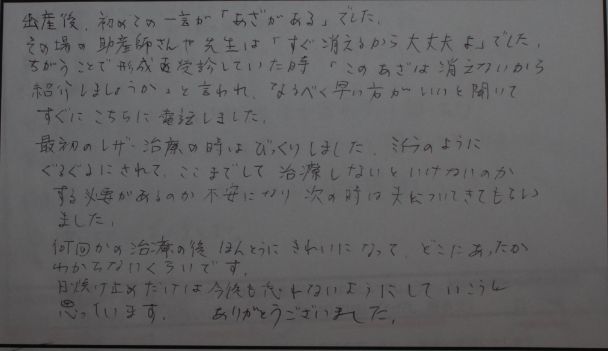 出産後、初めての一言が「あざがある」でした。
その場の助産師さんや先生は「すぐ消えるから大丈夫よ」でした。
ちがうことで形成受診していた時「このあざは消えないから
紹介しましょうか」と言われ、なるべく早い方がいいと聞いて
すぐにこちらに電話しました。
最初のレザー治療の時はびっくりしました、ミイラのように
ぐるぐるにされて、ここまでして治療しないといけないのか
する必要があるのか不安になり次の時は夫についてきてもらい
ました。
何回かの治療の後ほんとうにきれいになって、どこにあったか
わからないくらいです。
日焼け止めだけは今後も忘れないようにしていこうと
思っています。 ありがとうございました。